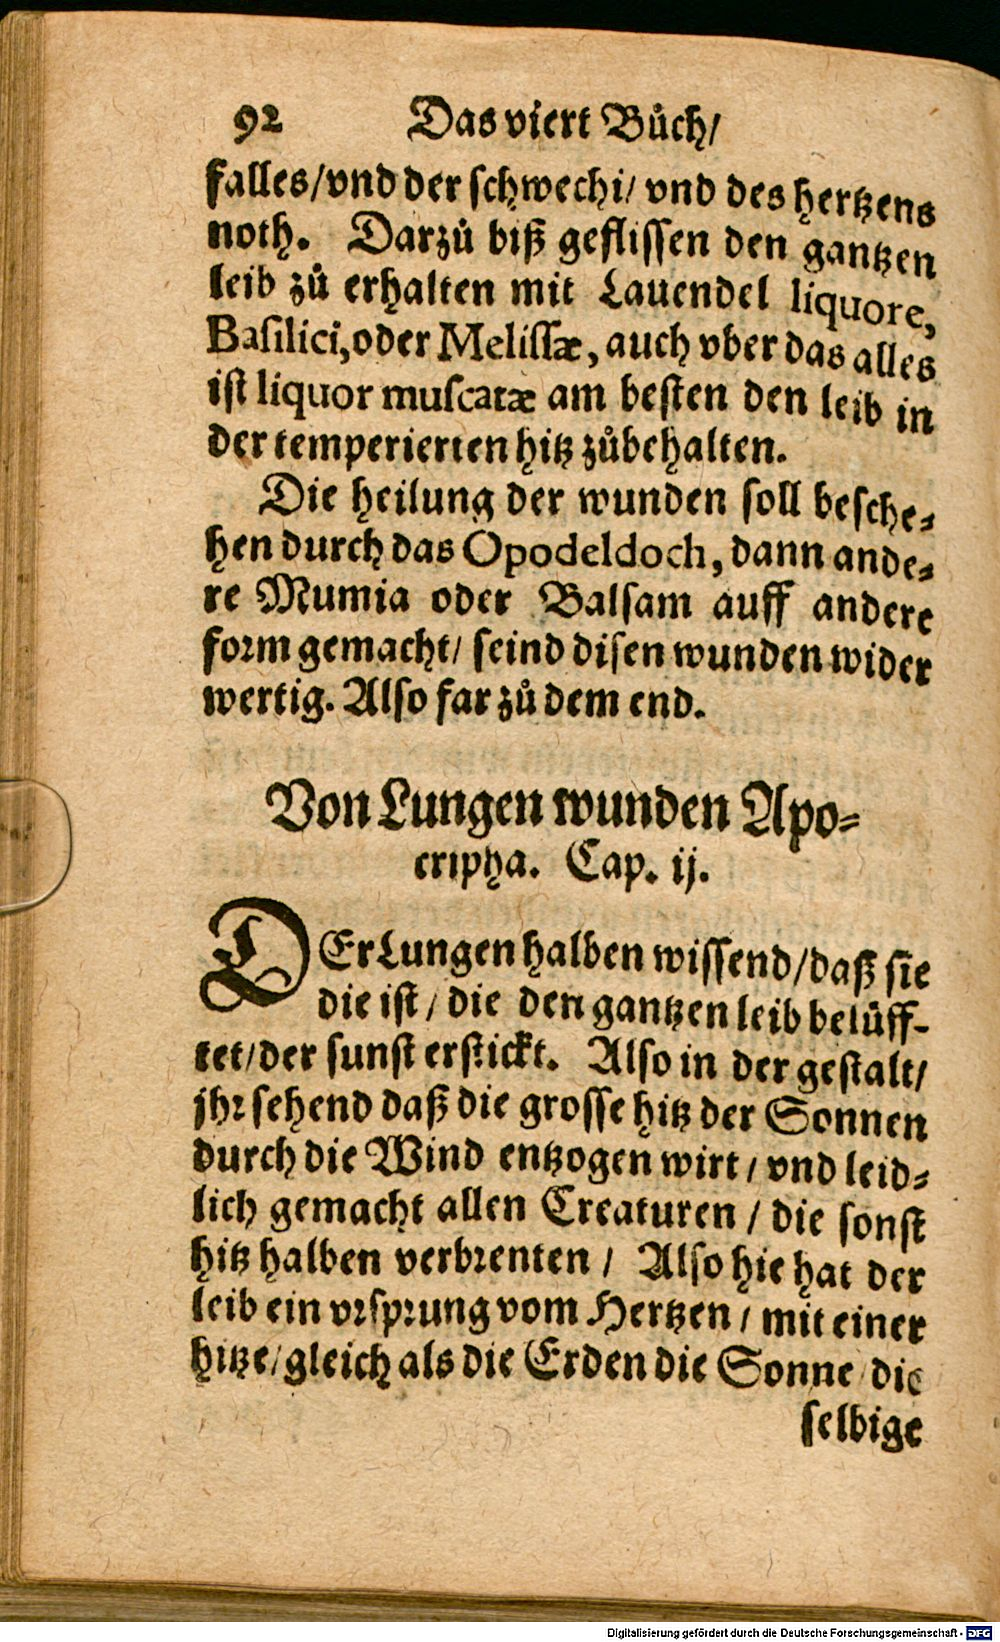 92 Das viert Bůch/
falles/vnd der schwechi/ vnd des hertzens
noth. Darzů biß geflissen den gantzen
leib zů erhalten mit Lauendel liquore,
Basilici, oder Melissæ, auch vber das alles
ist liquor muscatæ am besten den leib in
der temperierten hitz zůbehalten.
Die heilung der wunden soll besche⸗
hen durch das Opodeldoch, dann ande⸗
re Mumia oder Balsam auff andere
form gemacht/ seind disen wunden wider
wertig. Also far zů dem end.
Von Lungen wunden Apo⸗
cripha. Cap. ij.
DEr Lungen halben wissend/daß sie
die ist/ die den gantzen leib belüff-
tet/der sunst erstickt. Also in der gestalt/
jhr sehend daß die grosse hitz der Sonnen
durch die Wind entzogen wirt/ vnd leid⸗
lich gemacht allen Creaturen/ die sonst
hitz halben verbrenten/ Also hie hat der
leib ein vrsprung vom Hertzen/ mit einer
hitze/gleich als die Erden die Sonne/die
selbige
Digitalisierung gefördert durch die Deutsche Forschungsgemeinschaft - DFG